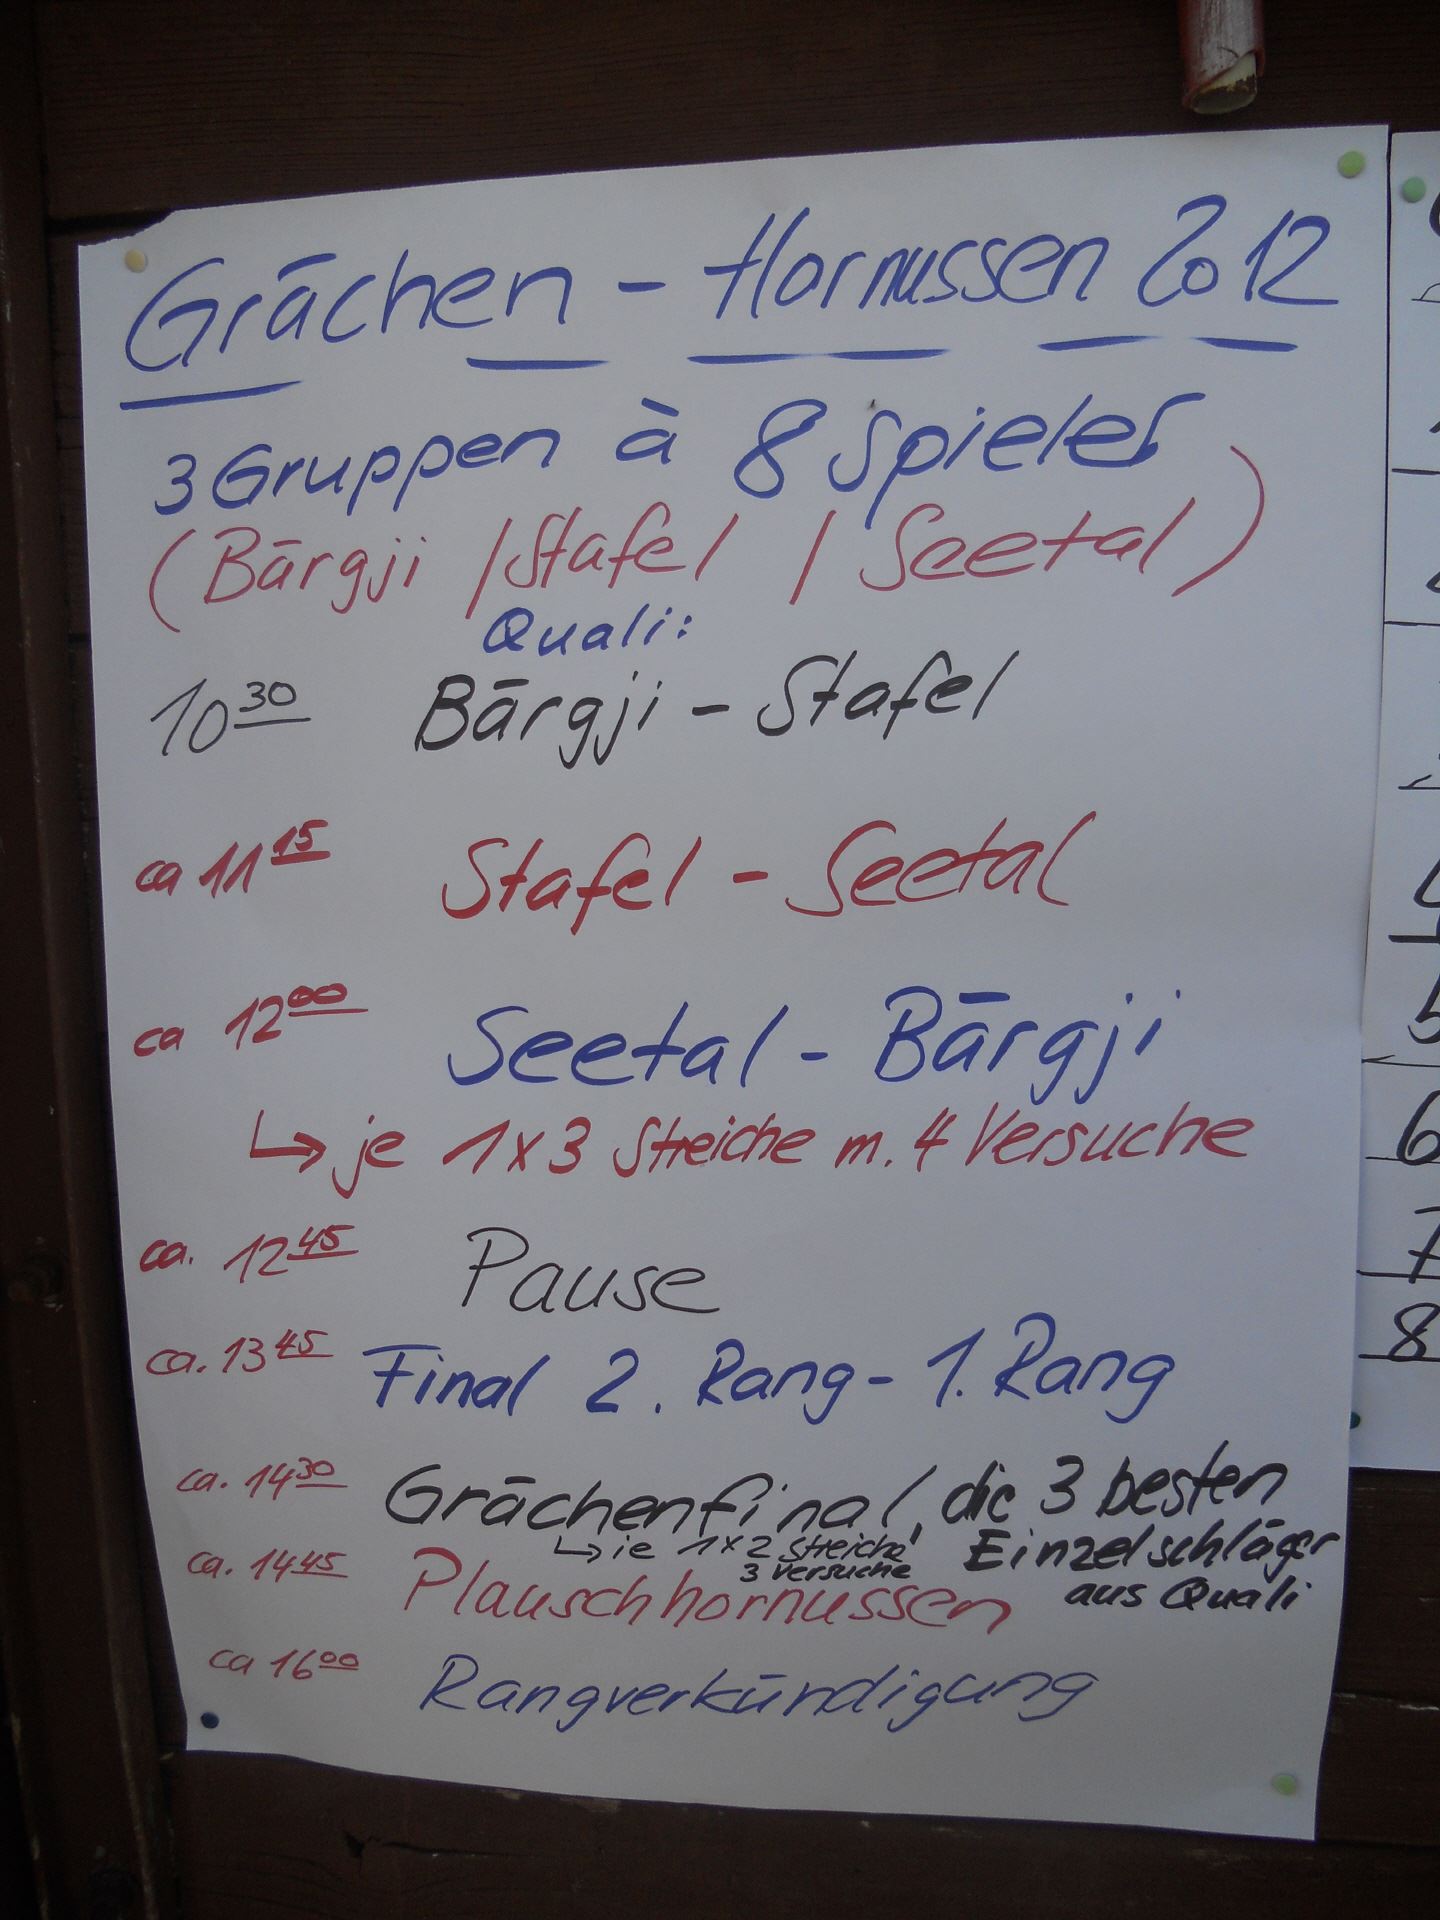 Grächen - Hornussen 2012
3 Gruppen à 8 Spieler
(Bärgji / Stafel / Seetal)
Quali:
10 30 Bärgji - Stafel
ca 11 15 Stafel - Seetal
ca 12 00 Seetal - Bärgji
↳ je 1x3 Streiche m. 4 Versuche
ca. 12 45 Pause
ca. 13 45 Final 2. Rang - 1. Rang
ca. 14 30 Grächenfinal, die 3 besten
↳ je 1x2 Streiche, Einzelschläger
3 Versuche aus Quali
ca. 14 45 Plauschhornussen
ca 16 00 Rangverkündigung
5
6
7
8